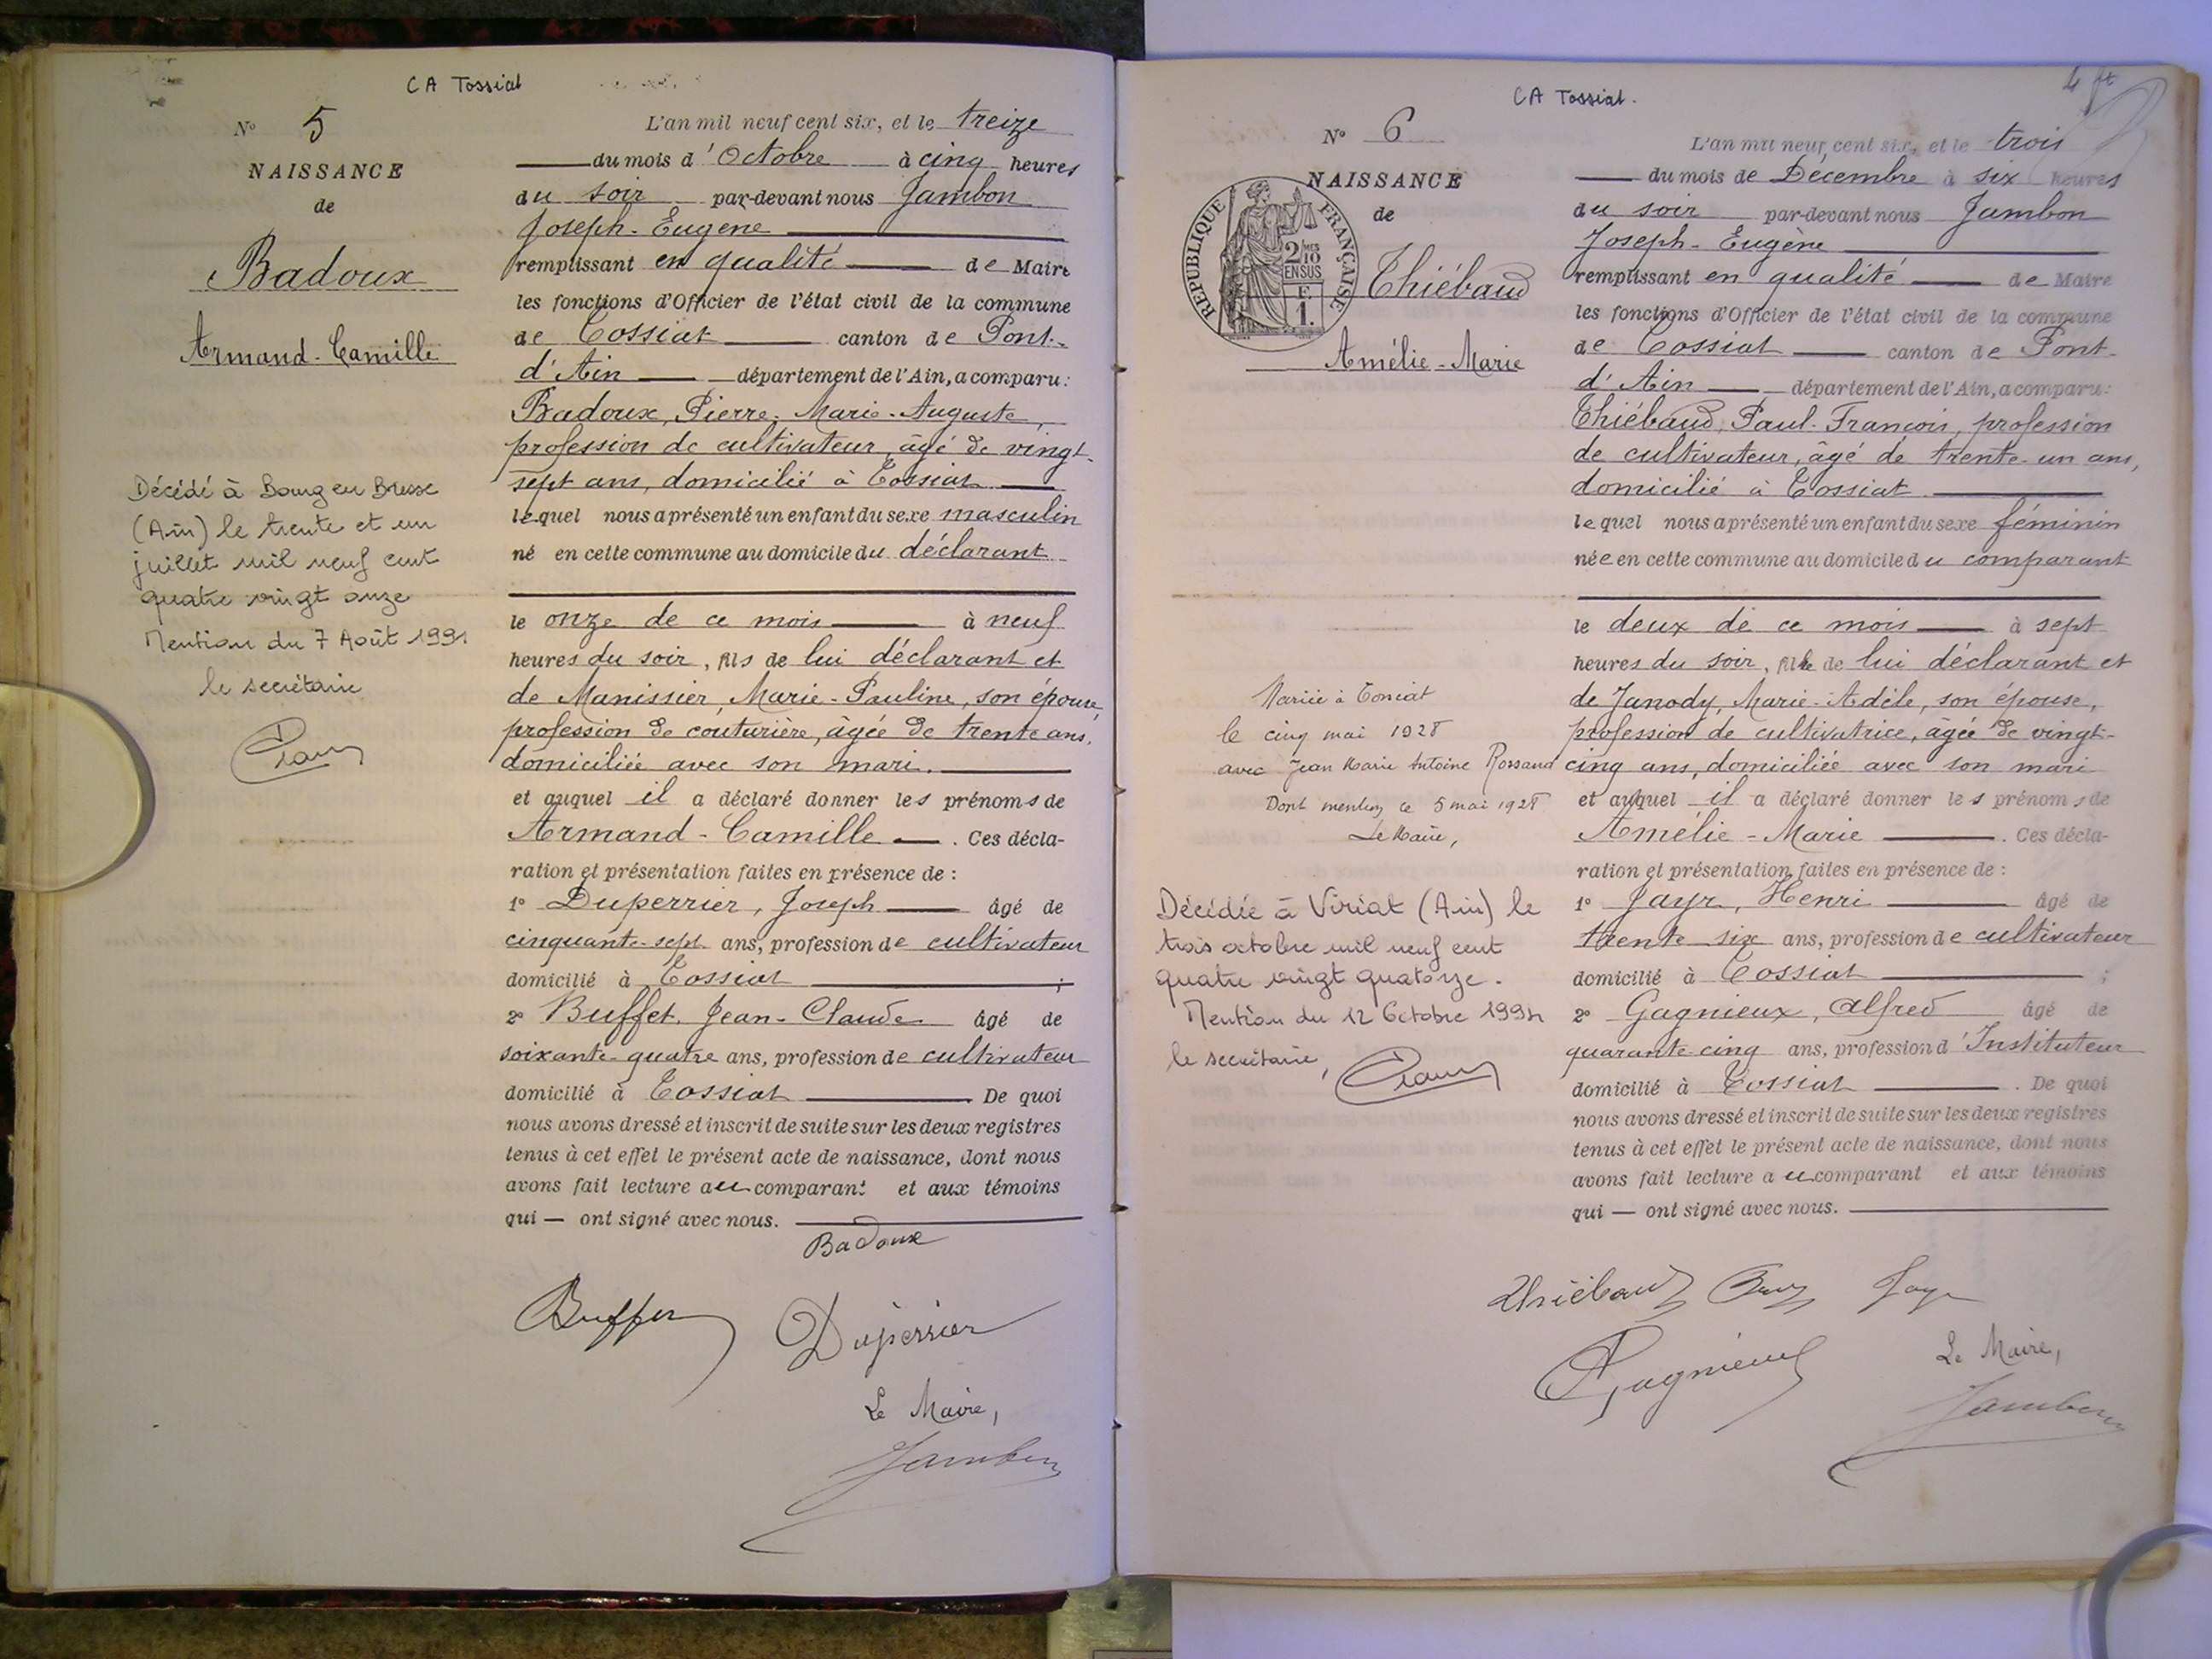 CA Tossiat
N° 5
NAISSANCE
de
Badoux
Armand-Camille
Décédé à Bourg en Bresse
(Ain) le trente et un
juillet mil neuf cent
quatre vingt onze
Mention du 7 Août 1991
le secrétaire
L'an mil neuf cent six, et le treize
du mois d'Octobre à cinq heures
du soir par-devant nous Jambon
Joseph-Eugène
remplissant en qualité de Maire
les fonctions d'Officier de l'état civil de la commune
de Tossiat canton de Pont-
d'Ain département de l'Ain, a comparu:
Badoux, Pierre-Marie-Auguste,
profession de cultivateur, âgé de vingt-
sept ans, domicilié à Tossiat
lequel nous a présenté un enfant du sexe masculin
né en cette commune au domicile du déclarant
le onze de ce mois à neuf
heures du soir, fils de lui déclarant et
de Manissier, Marie-Pauline, son épouse,
profession de couturière, âgée de trente ans,
domiciliée avec son mari.
et auquel il a déclaré donner les prénoms de
Armand-Camille. Ces décla-
ration et présentation faites en présence de :
1° Duperrier, Joseph âgé de
cinquante-sept ans, profession de cultivateur
domicilié à Tossiat ;
2° Buffet, Jean-Claude âgé de
soixante-quatre ans, profession de cultivateur
domicilié à Tossiat. De quoi
nous avons dressé et inscrit de suite sur les deux registres
tenus à cet effet le présent acte de naissance, dont nous
avons fait lecture au comparant et aux témoins
qui — ont signé avec nous.
Badoux
Buffet Duperrier
Le Maire,
Jambon
CA Tossiat.
4
N° 6
NAISSANCE
de
RÉPUBLIQUE FRANÇAISE
2/10 EN SUS
F. 1.
Thiébaud
Amélie-Marie
Mariée à Tossiat
le cinq mai 1928
avec Jean Marie Antoine Rossand
Dont mention le 5 mai 1928
Le Maire,
Décédée à Viriat (Ain) le
trois octobre mil neuf cent
quatre vingt quatorze.
Mention du 12 Octobre 1994
le secrétaire,
L'an mil neuf cent six, et le trois
du mois de Décembre à six heures
du soir par-devant nous Jambon
Joseph-Eugène
remplissant en qualité de Maire
les fonctions d'Officier de l'état civil de la commune
de Tossiat canton de Pont-
d'Ain département de l'Ain, a comparu:
Thiébaud, Paul-François, profession
de cultivateur, âgé de trente-un ans,
domicilié à Tossiat.
lequel nous a présenté un enfant du sexe féminin
née en cette commune au domicile du comparant
le deux de ce mois à sept
heures du soir, fille de lui déclarant et
de Janody, Marie-Adèle, son épouse,
profession de cultivatrice, âgée de vingt-
cinq ans, domiciliée avec son mari
et auquel il a déclaré donner les prénoms de
Amélie-Marie. Ces décla-
ration et présentation faites en présence de :
1° Jayr, Henri âgé de
trente six ans, profession de cultivateur
domicilié à Tossiat ;
2° Gagnieux, Alfred âgé de
quarante-cinq ans, profession d'Instituteur
domicilié à Tossiat. De quoi
nous avons dressé et inscrit de suite sur les deux registres
tenus à cet effet le présent acte de naissance, dont nous
avons fait lecture au comparant et aux témoins
qui — ont signé avec nous.
Thiébaud Jayr
Gagnieux Le Maire,
Jambon